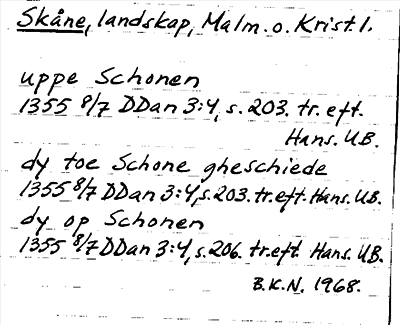 Skåne, landskap, Malm. o. Krist. l.
uppe Schonen
1355 8/7 DDan 3:4, s. 203. tr. eft.
Hans. UB.
dy toe Schone gheschiede
1355 8/7 DDan 3:4, s. 203. tr. eft. Hans. UB.
dy op Schonen
1355 8/7 DDan 3:4, s. 206. tr. eft. Hans. UB.
B.K.N. 1968.